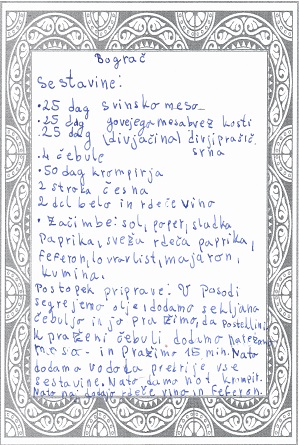 Bograč
Sestavine:
• 25 dag svinsko meso
• 25 dag govejega mesa brez kosti
• 25 dag (divjačina) divji prašič,
srna
• 4 čebule
• 50 dag krompirja
2 stroka česna
2 dcl belo in rdeče vino
• začimbe: sol, poper, sladka
paprika, sveža rdeča paprika,
feferon, lovor list, majaron,
kumina.
Postopek priprave: V posodi
segrejemo olje, dodamo sekljano
čebuljo in jo pražimo, da postekleni
K praženi čebuli, dodamo narezano
meso - in pražimo 15 min. Nato
dodamo vodo da prekrije vse
sestavine. Nato damo not krompir.
Nato pa dodajo rdeče vino in feferon.